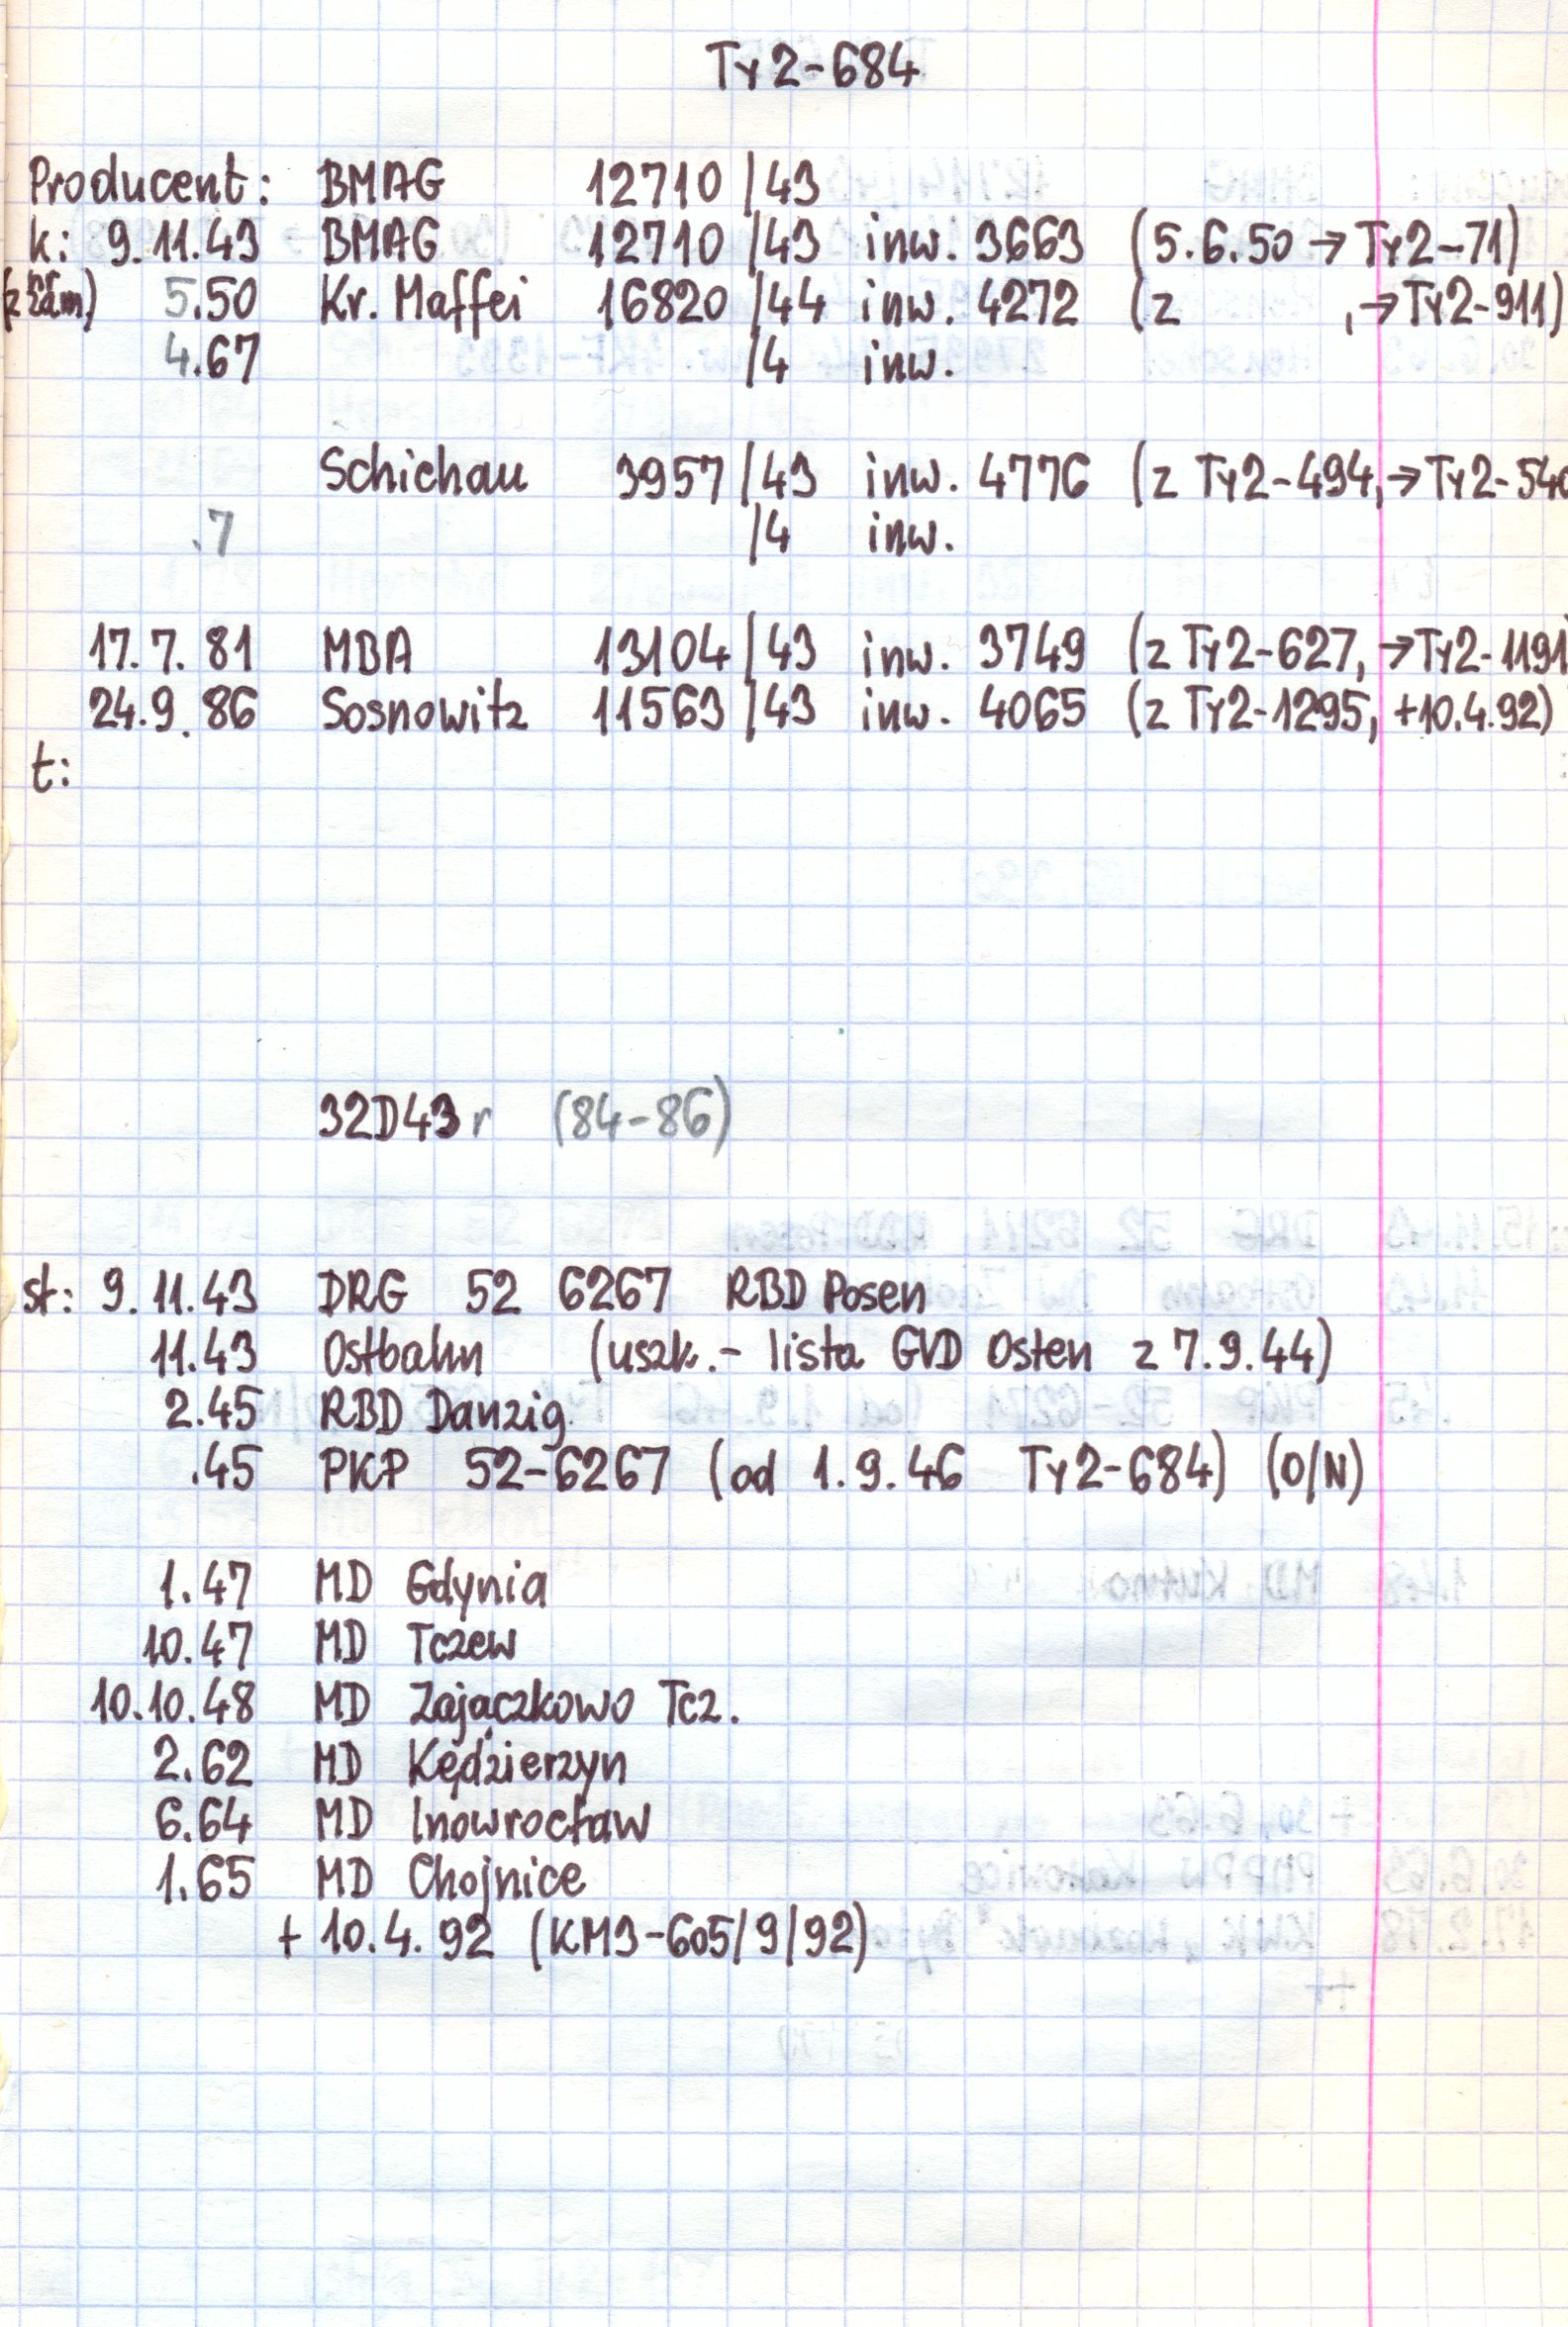 Ty2-684
Producent: BMAG 12710/43
k: 9.11.43 BMAG 12710/43 inw. 3663 (5.6.50 → Ty2-71)
5.50 Kr. Maffei 16820/44 inw. 4272 (z , → Ty2-911)
4.67 /4 inw.
Schichau 3957/43 inw. 4776 (z Ty2-494, → Ty2-540
.7 /4 inw.
17.7.81 MBA 13104/43 inw. 3749 (z Ty2-627, → Ty2-1191
24.9.86 Sosnowitz 11563/43 inw. 4065 (z Ty2-1295, +10.4.92)
t:
32D43r (84-86)
st: 9.11.43 DRG 52 6267 RBD Posen
11.43 Ostbahn (uszk.- lista GVD Osten z 7.9.44)
2.45 RBD Danzig
.45 PKP 52-6267 (od 1.9.46 Ty2-684) (O/N)
1.47 MD Gdynia
10.47 MD Tczew
10.10.48 MD Zajączkowo Tcz.
2.62 MD Kędzierzyn
6.64 MD Inowrocław
1.65 MD Chojnice
+ 10.4.92 (KM3-605/9/92)